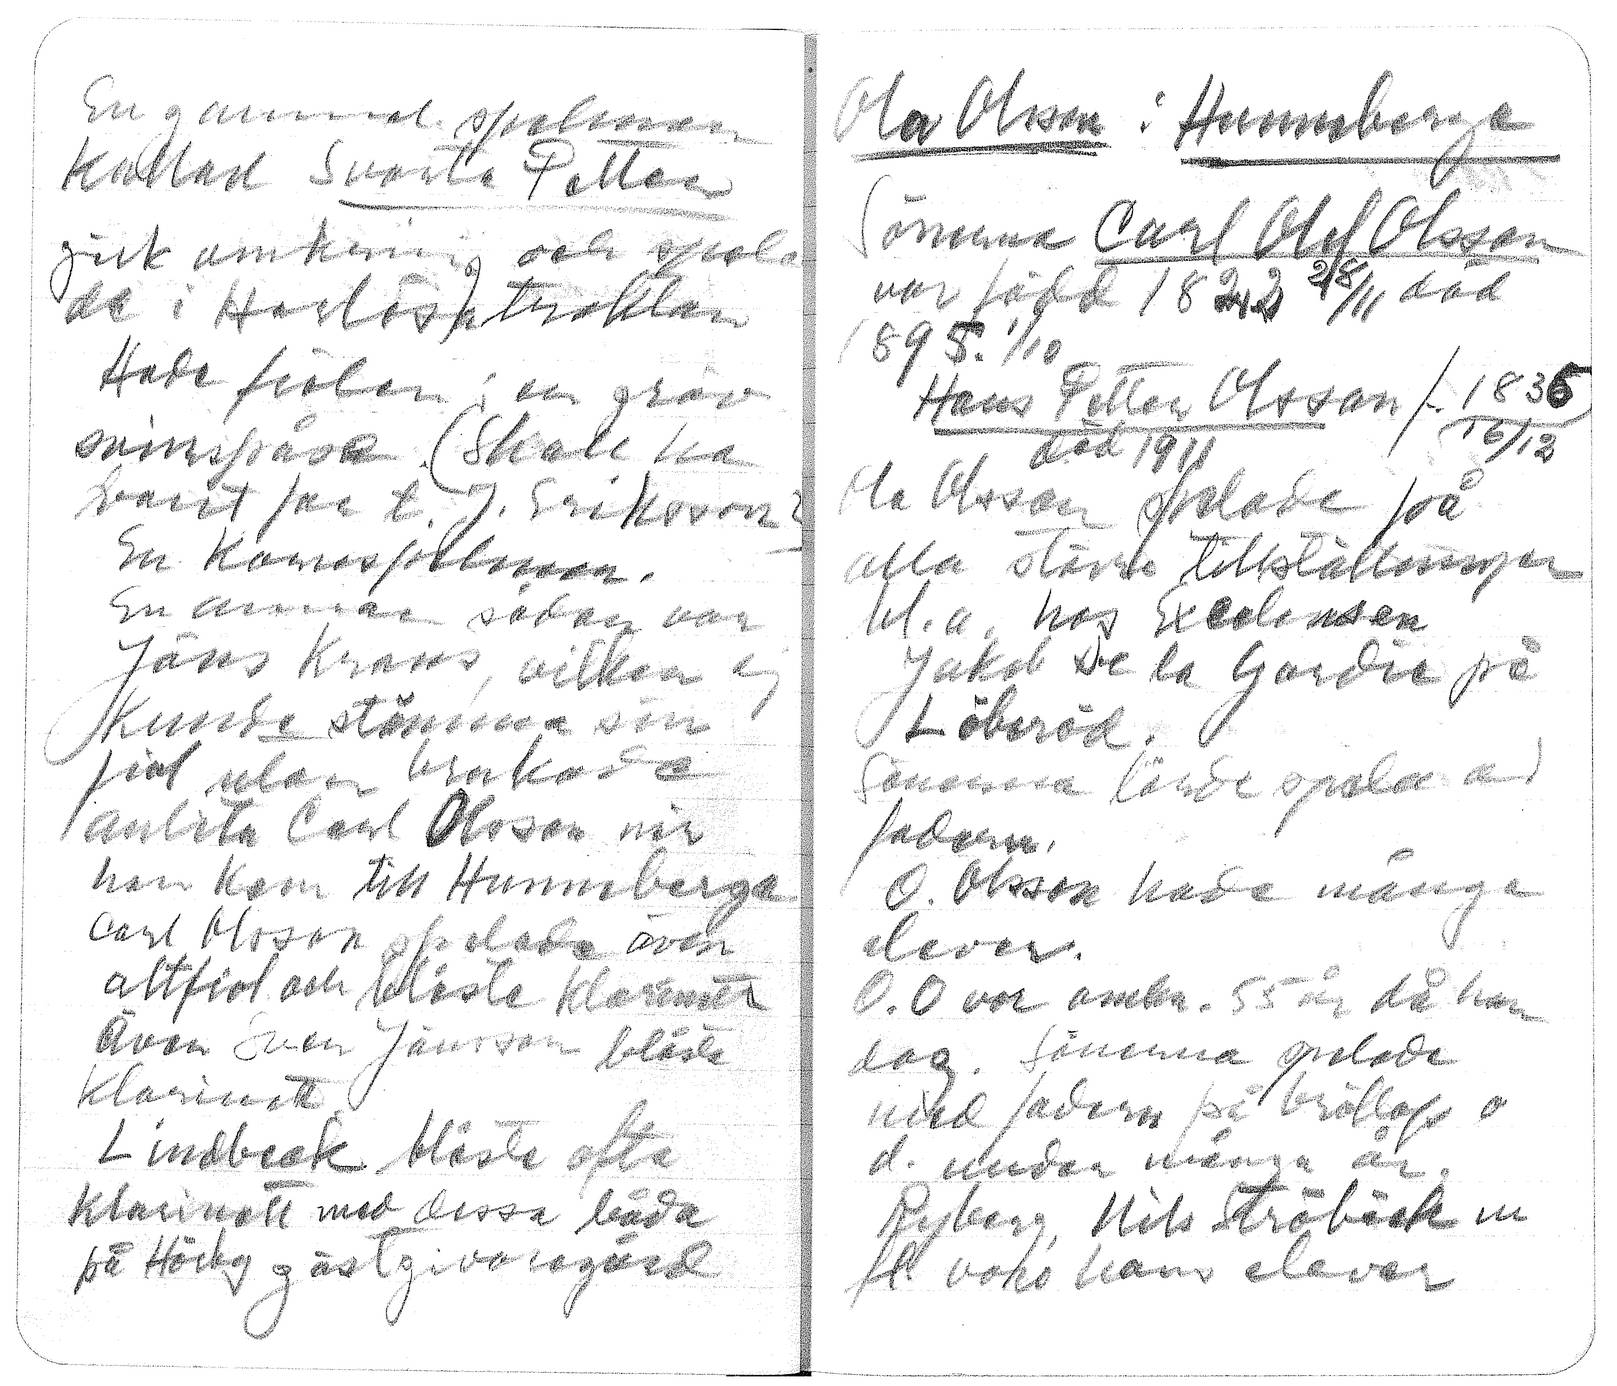 En gammal spelman
Kallad Svarta Petter
gick omkring och spela
de i Harlösatrakten
Hade fiolen i en grov
svinspåse. (Skall ha
varit far t. J. Eriksson?
En Kornspelman.
En annan sådan var
Jäns Krans, vilken ej
Kunde stämma sin
fiol utan brukade
anlita Carl Olsson när
han kom till Hunneberga
Carl Olsson spelade även
altfiol och blåste klarinett
Även Sven Jönsson blåste
klarinett
Lindbeck blåste ofta
klarinett med dessa båda
på Hörby gästgivaregård
Ola Olsson i Hunneberga
Sönerna Carl Olof Olsson
var född 1842 28/11 död
1895. 1/10
Hans Petter Olsson f. 1836
16/12
död 1911
Ola Olsson spelade på
alla större tillställningar
bl.a. hos Excelensen
Jakob De la Gardie på
Löberöd.
Sönerna lärde spela av
fadern.
O. Olsson hade många
elever.
O.O var omkr. 55 år då han
dog. Sönerna spelade
med fadern på bröllop o
d. under många år.
Ryberg, Nils Ströbäck m
fl. voro hans elever